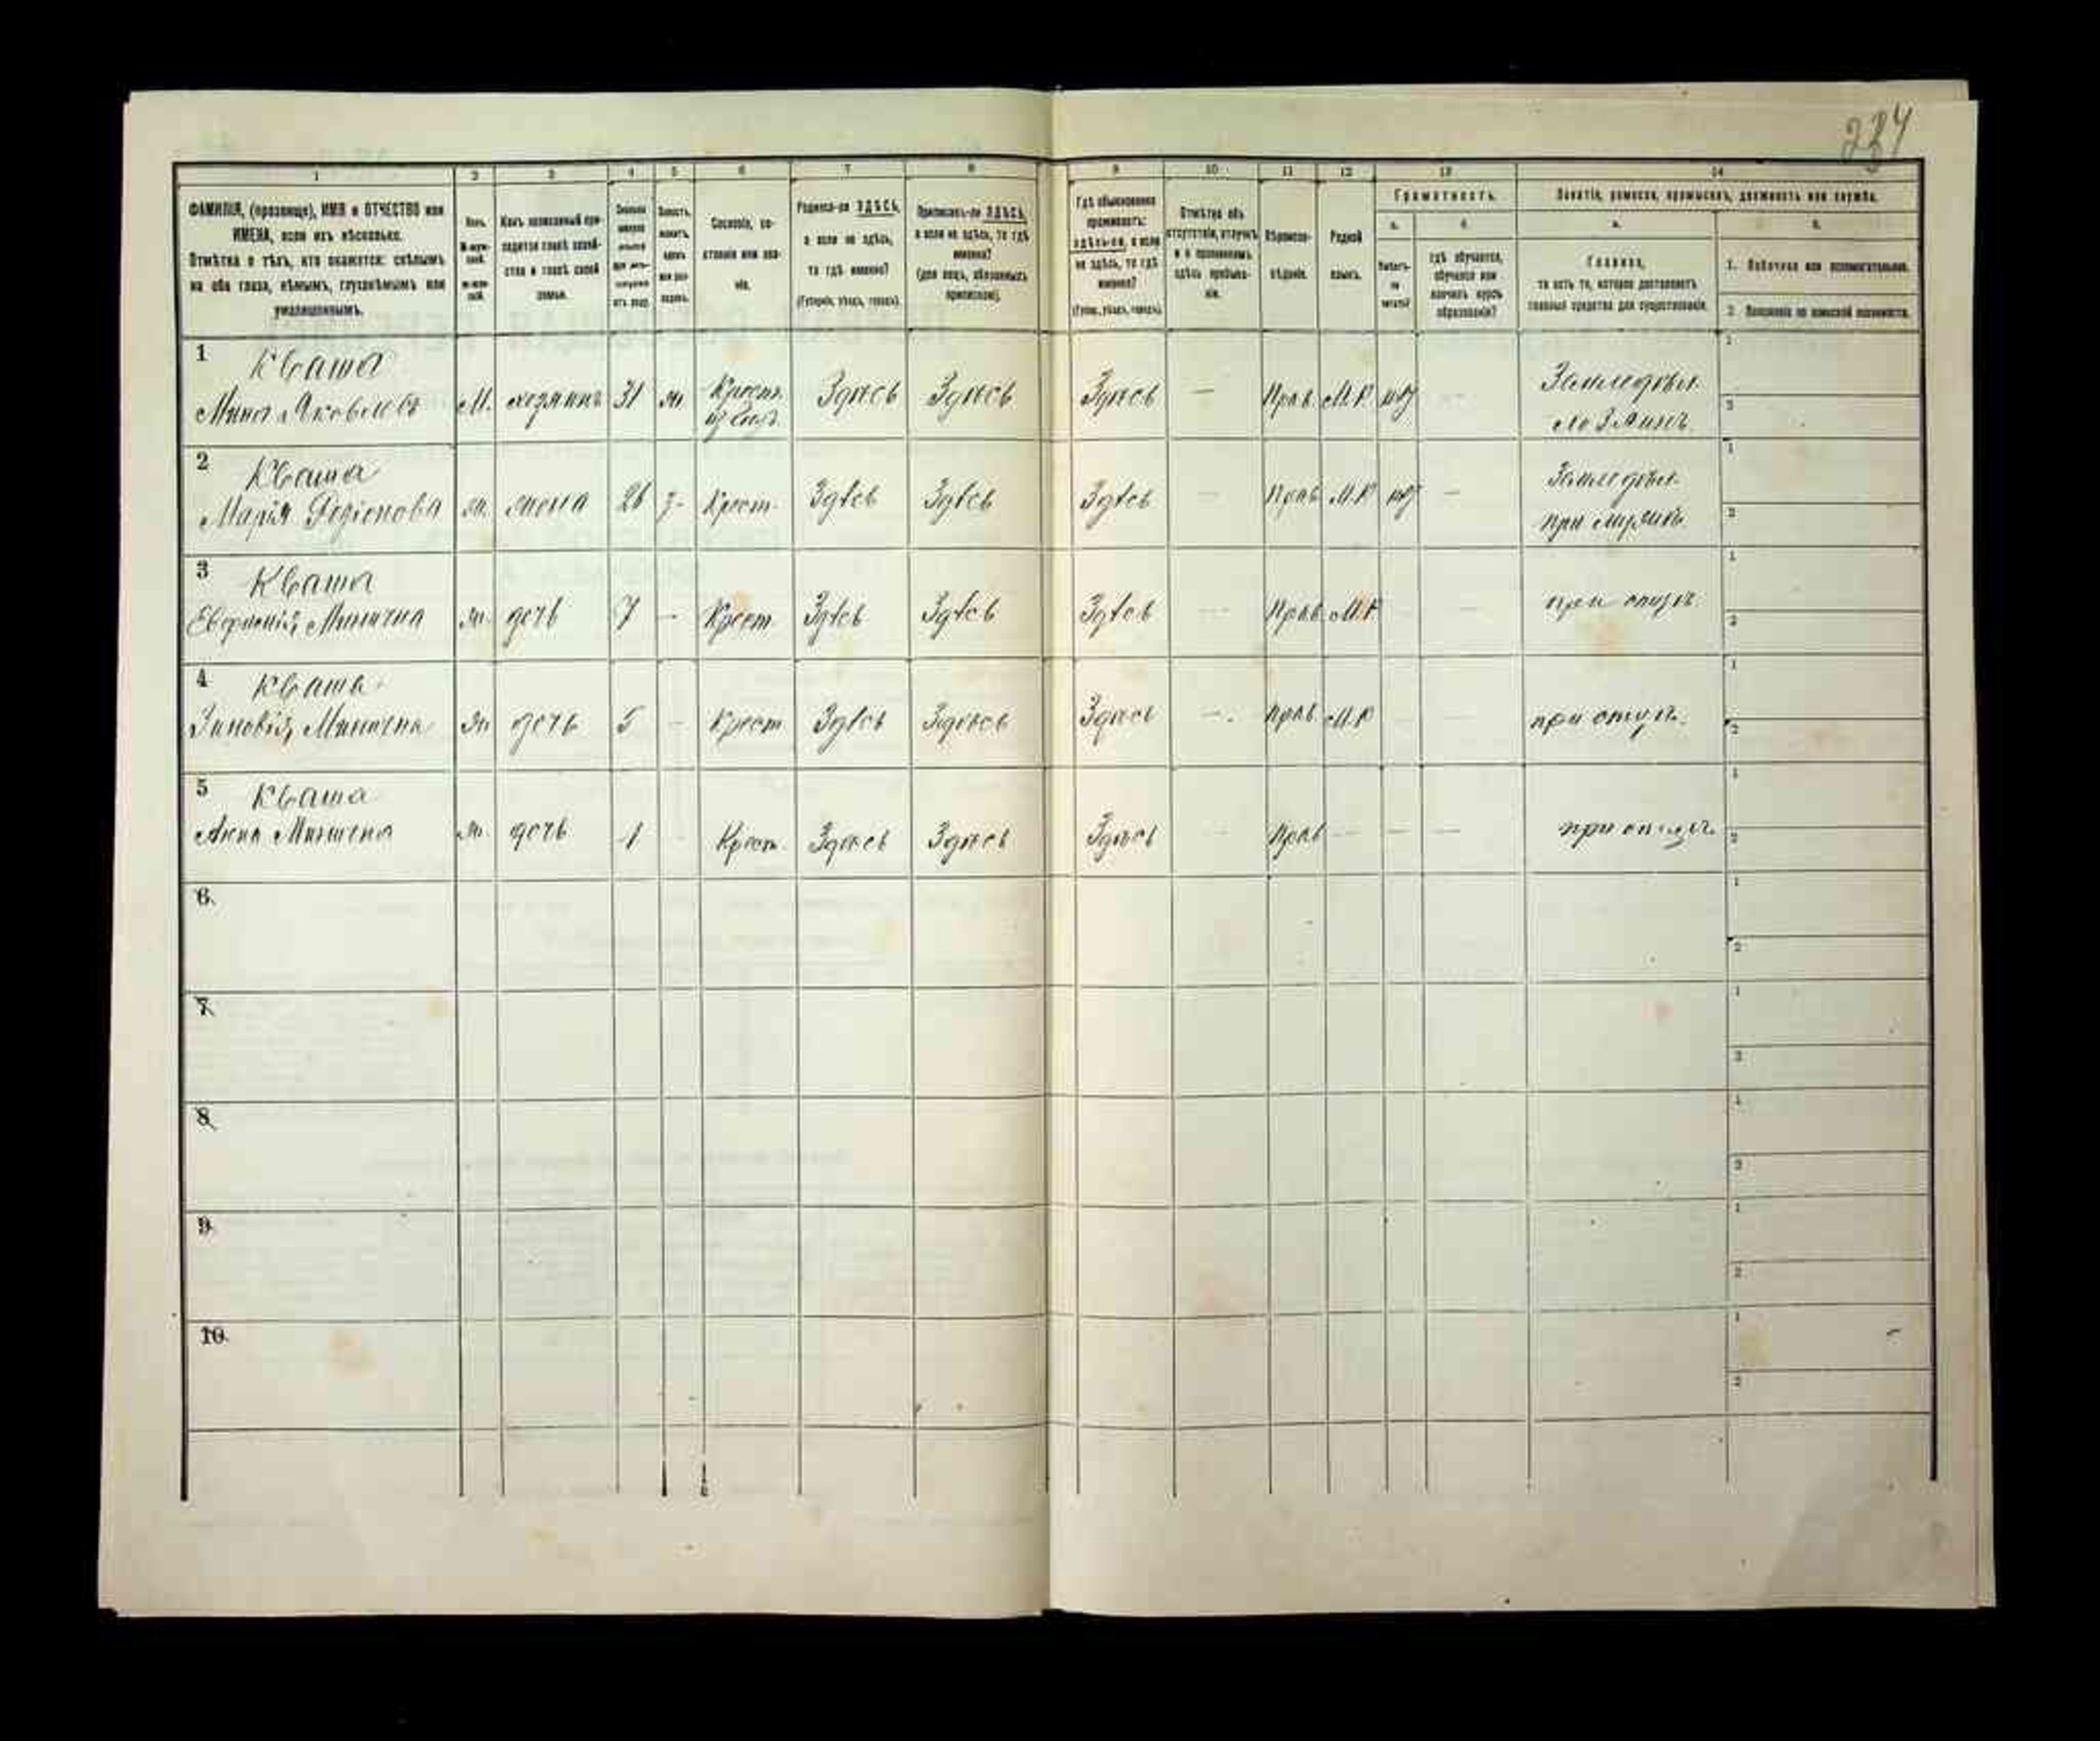 234
1 2 3 4 5 6 7 8 9 10 11 12 13 14
ФАМИЛІЯ, (прозвище), ИМЯ и ОТЧЕСТВО или
ИМЕНА, если ихъ нѣсколько.
Отмѣтка о тѣхъ, кто окажется: слѣпымъ
на оба глаза, нѣмымъ, глухонѣмымъ или
умалишеннымъ.
Полъ.
Какъ записанный при-
ходится главѣ хозяй-
ства и главѣ своей
семьи.
Сословіе, со-
стояніе или зва-
ніе.
Родился-ли ЗДѢСЬ,
а если не здѣсь,
то гдѣ именно?
(Губернія, уѣздъ, городъ).
Приписанъ-ли ЗДѢСЬ,
а если не здѣсь, то гдѣ
именно?
(для лицъ, обязанныхъ
припискою).
Гдѣ обыкновенно
проживаетъ:
здѣсь-ли, а если
не здѣсь, то гдѣ
именно?
(Губер., уѣздъ, городъ).
Отмѣтка объ
отсутствіи, отлучкѣ
и о временномъ
здѣсь пребыва-
ніи.
Вѣроиспо-
вѣданіе.
Родной
языкъ.
Грамотность.
а. б.
Умѣетъ-
ли
читать?
гдѣ обучается,
обучался или
кончилъ курсъ
образованія?
Занятіе, ремесло, промыселъ, должность или служба.
а. б.
Главное,
то есть то, которое доставляетъ
главныя средства для существованія.
1. Побочное или вспомогательное.
2. Положеніе по воинской повинности.
1 Кваша
Мина Яковлевъ М. хозяинъ 31 ж Крест. Здѣсь Здѣсь Здѣсь — Прав. М.Р Земледѣл.
хозяинъ
2 Кваша
Марія Родіонова ж. жена 26 з. Крест. Здѣсь Здѣсь Здѣсь — Прав. М.Р — Земледѣл.
при мужѣ
3 Кваша
Евфимія Минична ж. дочь 7 — Крест. Здѣсь Здѣсь Здѣсь — Прав. М.Р при отцѣ
4 Кваша
Зиновія Минична ж. дочь 5 — Крест Здѣсь Здѣсь Здѣсь — Прав. М.Р при отцѣ.
5 Кваша
Анна Минична ж. дочь 1 - Крест. Здѣсь Здѣсь Здѣсь — Прав — — — при отцѣ
6.
7.
8.
9.
10.